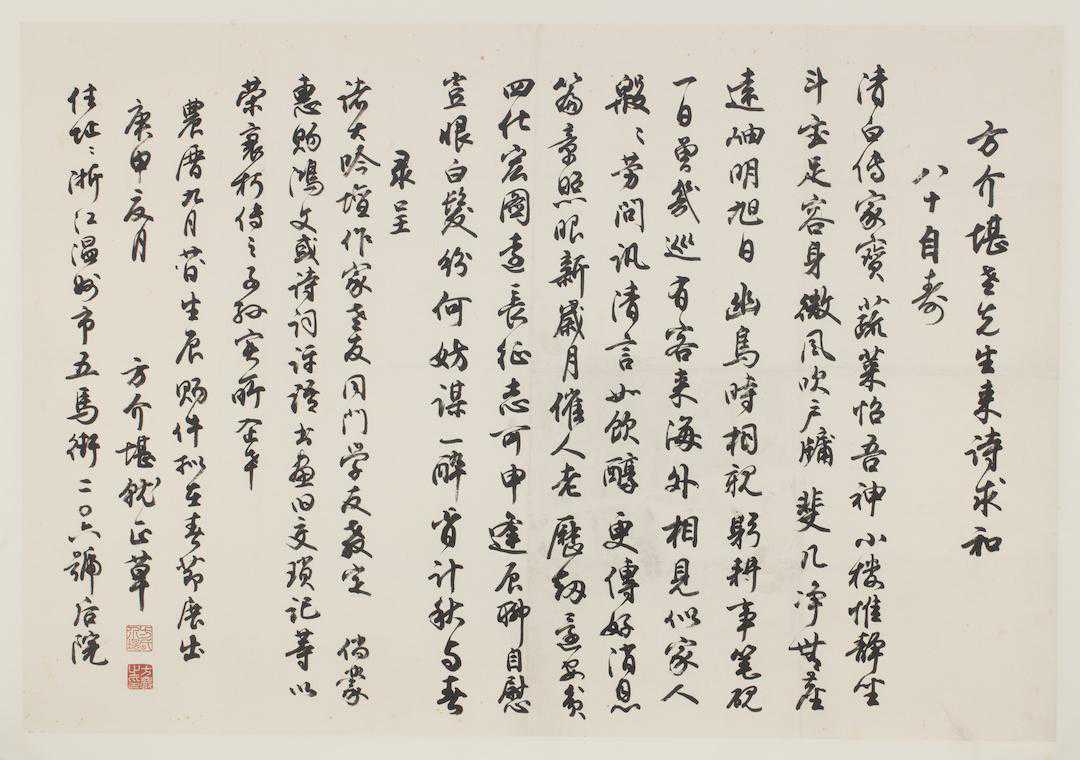 方介堪老先生来诗求和
八十自寿
清白传家寶蔬菜怡吾神小楼惟静坐
斗室足容身微风吹户牖斐几净無塵
遠岫明旭日幽鳥時相親躬耕事笔砚
一日曾幾巡有客来海外相見似家人
殷殷劳问讯清言如饮醇更傳好消息
篇章照眼新歲月催人老歷劫還安貧
四化宏圖遠長征志可申逢辰聊自慰
豈恨白髮纷何妨谋一醉肯计秋与春
录呈
诸大吟壇作家老友同门学友教定 倘蒙
惠赐鴻文或诗词评語书画旧交琐记等以
荣衰朽传之子孙实所企幸
農曆九月 生辰赐件拟在春节展出
庚申夏月 方介堪就正草
住址:浙江温州市五馬街二〇六號后院